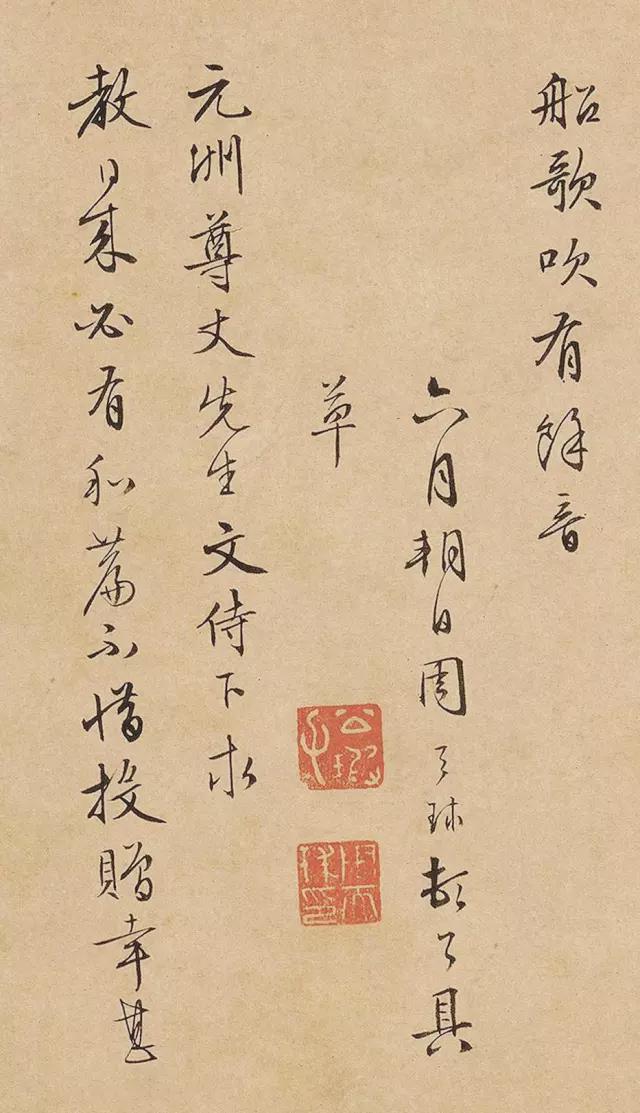 船歌吹有餘音
六月朔日周天球頓首具
草
公瑕
周天球印
元洲尊丈先生文侍下求
教日來必有和篇不惜投贈幸甚